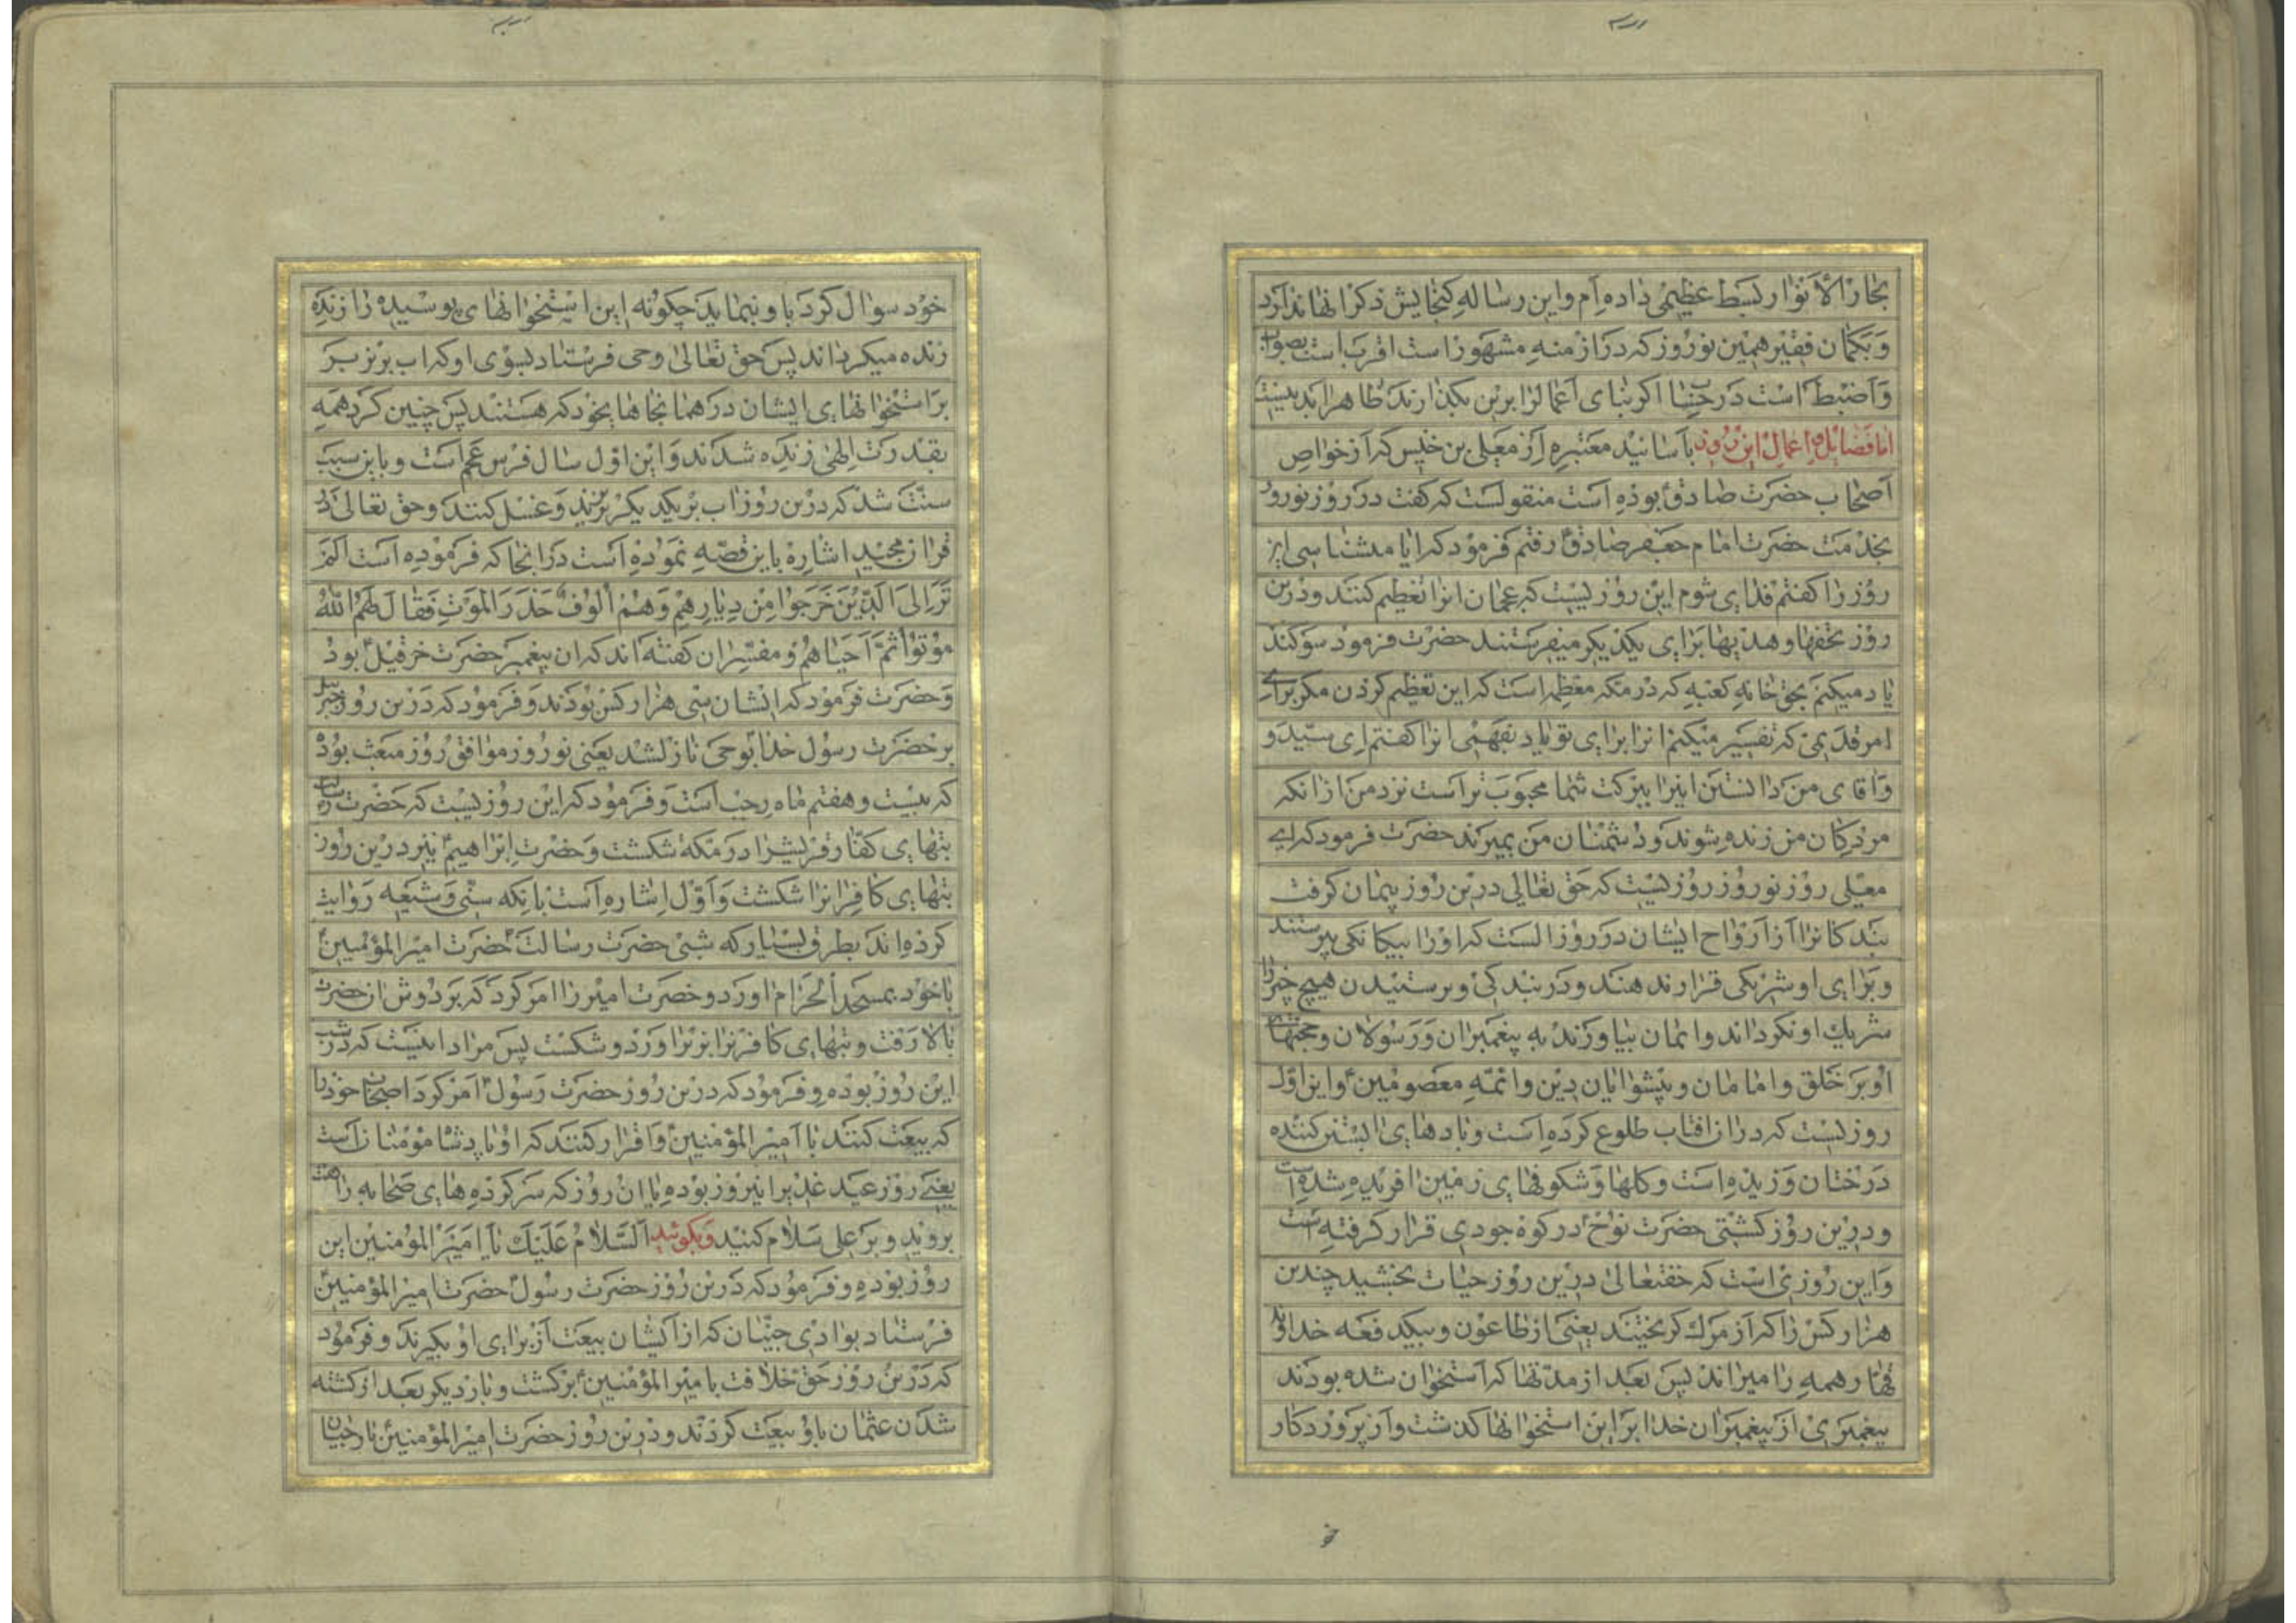 بحار الانوار بسط عظیمی داده ام و این رساله کنجایش ذکر انها ندارد
و بکمان فقیر همین نوروز که در ازمنه مشهور است اقرب است بصواب
و اضبط است در حساب اکر بنای اعمال را برین بکذارند ظاهرا بد نیست
اما فضائل و اعمال این روز باسانید معتبره از معلی بن خنیس که از خواص
اصحاب حضرت صادق بوده است منقولست که کفت در روز نوروز
بخدمت حضرت امام جعفر صادق رفتم فرمود که ایا میشناسی این
روز را کفتم فدای شوم این روزیست که عجمان انرا تعظیم کنند و درین
روز تحفها و هدیها برای یکدیکر میفرستند حضرت فرمود سوکند
یاد میکنم بحق خانه کعبه که در مکه معظمه است که این تعظیم کردن مکر برای
امر قدیمی که تفسیر میکنم انرا برای تو تا بفهمی انرا کفتم ای سید و
و اقای من دانستن اینرا ببرکت شما محبوب تر است نزد من از انکه
مردکان من زنده شوند و دشمنان من بمیرند حضرت فرمود که ای
معلی روز نوروز روزیست که حق تعالی درین روز پیمان کرفت
بندکانرا از ارواح ایشان در روز الست که او را بیکانکی بپرستند
و برای او شریکی قرار ندهند و در بندکی و پرستیدن هیچ چیز را
شریک او نکردانند و ایمان بیاورند به پیغمبران و رسولان و حجتهای
او بر خلق و امامان و پیشوایان دین و ائمه معصومین و این اول
روزیست که در ان افتاب طلوع کرده است و بادهای ابستن کننده
درختان وزیده است و کلها و شکوفهای زمین افریده شده است
و درین روز کشتی حضرت نوح در کوه جودی قرار کرفته است
و این روزی است که حقتعالی درین روز حیات بخشید چندین
هزار کس را که از مرک کریختند یعنی از طاعون و بیکدفعه خداوند
قهار همه را میراند پس بعد از مدتها که استخوان شده بودند
پیغمبری از پیغمبران خدا بر این استخوانها کذشت و از پروردکار
خود سوال کرد با و بنماید چکونه این استخوانهای پوسیده را زنده
زنده میکرداند پس حق تعالی وحی فرستاد بسوی او که اب بریز بر
بر استخوانهای ایشان در همانجاها بخود که هستند پس چنین کرد همه
بقدرت الهی زنده شدند و این اول سال فرس عجم است و باین سبب
سنت شد که درین روز اب بر یکدیکر بریزند و غسل کنند و حق تعالی در
قران مجید اشاره باین قصه نموده است در انجا که فرموده است الم
تر الی الذین خرجوا من دیارهم و هم الوف حذر الموت فقال لهم الله
موتوا ثم احیاهم و مفسران کفته اند که ان پیغمبر حضرت حزقیل بود
و حضرت فرمود که ایشان سی هزار کس بودند و فرمود که درین روز جبرئیل
بر حضرت رسول خدا بوحی نازلشد یعنی نوروز موافق روز مبعث بود
که بیست و هفتم ماه رجب است و فرمود که این روزیست که حضرت رسالت
بتهای کفار قریشرا در مکه شکست و حضرت ابراهیم نیز درین روز
بتهای کافرانرا شکست و اول اشاره است بانکه سنی و شیعه روایت
کرده اند بطرق بسیار که شبی حضرت رسالت حضرت امیر المؤمنین
با خود بمسجد الحرام اورد و حضرت امیر را امر کرد که بر دوش ان حضرت
بالا رفت و بتهای کافرنرا بزیر اورد و شکست پس مراد اینست که در شب
این روز بوده و فرمود که درین روز حضرت رسول امر کرد اصحاب خود را
که بیعت کنند با امیر المؤمنین و اقرار کنند که او پادشا مؤمنان است
یعنی روز عید غدیر نیز نوروز بوده یا ان روز که سرکرده های صحابه را
بروید و بر علی سلام کنید و بکوئید السلام علیک یا امیر المؤمنین این
روز بوده و فرمود که درین روز حضرت رسول حضرت امیر المؤمنین
فرستاد بوادی جنیان که از ایشان بیعت از برای او بکیرند و فرمود
که درین روز حق خلافت بامیر المؤمنین برکشت و بار دیکر بعد از کشته
شدن عثمان باو بیعت کردند و درین روز حضرت امیر المؤمنین با